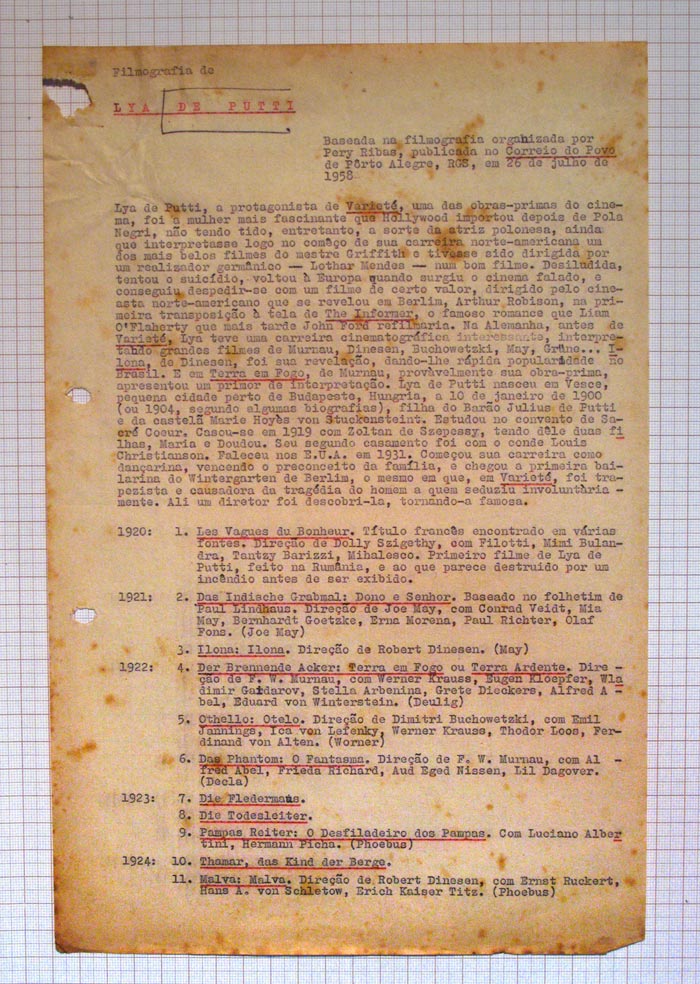 Filmografia de
LYA DE PUTTI
Baseada na filmografia organizada por
Pery Ribas, publicada no Correio do Povo
de Pôrto Alegre, RGS, em 26 de julho de
1958
Lya de Putti, a protagonista de Varieté, uma das obras-primas do cine-
ma, foi a mulher mais fascinante que Hollywood importou depois de Pola
Negri, não tendo tido, entretanto, a sorte da atriz polonesa, ainda
que interpretasse logo no comêço de sua carreira norte-americana um
dos mais belos filmes do mestre Griffith e tivesse sido dirigida por
um realizador germânico — Lothar Mendes — num bom filme. Desiludida,
tentou o suicídio, voltou à Europa quando surgiu o cinema falado, e
conseguiu despedir-se com um filme de certo valor, dirigido pelo cine-
asta norte-americano que se revelou em Berlim, Arthur Robison, na pri-
meira transposição à tela de The Informer, o famoso romance que Liam
O'Flaherty que mais tarde John Ford refilmaria. Na Alemanha, antes de
Varieté, Lya teve uma carreira cinematográfica interessante, interpre-
tando grandes filmes de Murnau, Dinesen, Buchowetzki, May, Grüne... I-
lona, de Dinesen, foi sua revelação, dando-lhe rápida popularidade no
Brasil. E em Terra em Fogo, de Murnau, provàvelmente sua obra-prima,
apresentou um primor de interpretação. Lya de Putti nasceu em Vesce,
pequena cidade perto de Budapeste, Hungria, a 10 de janeiro de 1900
(ou 1904, segundo algumas biografias), filha do Barão Julius de Putti
e da castelã Marie Hoyes von Stuckensteint. Estudou no convento de Sa-
cré Coeur. Casou-se em 1919 com Zoltan de Szepessy, tendo dêle duas fi
lhas, Maria e Doudou. Seu segundo casamento foi com o conde Louis
Christianson. Faleceu nos E.U.A. em 1931. Começou sua carreira como
dançarina, vencendo o preconceito da família, e chegou a primeira bai-
larina do Wintergarten de Berlim, o mesmo em que, em Varieté, foi tra-
pezista e causadora da tragédia do homem a quem seduziu involuntària -
mente. Ali um diretor foi descobri-la, tornando-a famosa.
1920: 1. Les Vagues du Bonheur. Título francês encontrado em várias
fontes. Direção de Dolly Szigethy, com Filotti, Mimi Bulan-
dra, Tantzy Barizzi, Mihalesco. Primeiro filme de Lya de
Putti, feito na Rumânia, e ao que parece destruido por um
incêndio antes de ser exibido.
1921: 2. Das Indische Grabmal: Dono e Senhor. Baseado no folhetim de
Paul Lindhaus. Direção de Joe May, com Conrad Veidt, Mia
May, Bernhardt Goetzke, Erna Morena, Paul Richter, Olaf
Fons. (Joe May)
3. Ilona: Ilona. Direção de Robert Dinesen. (May)
1922: 4. Der Brennende Acker: Terra em Fogo ou Terra Ardente. Dire -
ção de F. W. Murnau, com Werner Krauss, Eugen Kloepfer, Wla
dimir Gaidarov, Stella Arbenina, Grete Dieckers, Alfred A -
bel, Eduard von Winterstein. (Deulig)
5. Othello: Otelo. Direção de Dimitri Buchowetzki, com Emil
Jannings, Ica von Lefenky, Werner Krauss, Thodor Loos, Fer-
dinand von Alten. (Worner)
6. Das Phantom: O Fantasma. Direção de F. W. Murnau, com Al -
fred Abel, Frieda Richard, Aud Eged Nissen, Lil Dagover.
(Decla)
1923: 7. Die Fledermaus.
8. Die Todesleiter.
9. Pampas Reiter: O Desfiladeiro dos Pampas. Com Luciano Alber
tini, Hermann Picha. (Phoebus)
1924: 10. Thamar, das Kind der Berge.
11. Malva: Malva. Direção de Robert Dinesen, com Ernst Ruckert,
Hans A. von Schletow, Erich Kaiser Titz. (Phoebus)